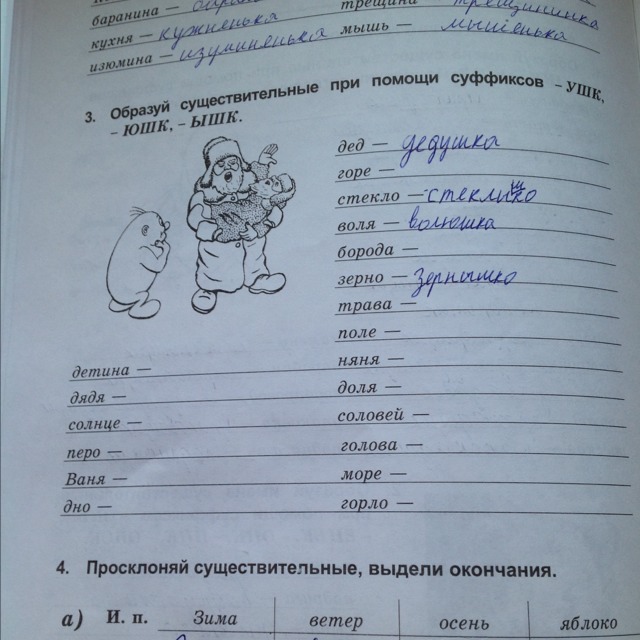 баранина —
трещина — трещининка
кухня — кужненька
мышь — мышенька
изюмина — изуминенька
3. Образуй существительные при помощи суффиксов – УШК,
– ЮШК, – ЫШК.
дед — дедушка
горе —
стекло —
воля — волюшка
борода —
зерно — Зернышко
трава —
поле —
детина —
няня —
дядя —
доля —
солнце —
соловей —
перо —
голова —
Ваня —
море —
дно —
горло —
4. Просклоняй существительные, выдели окончания.
а) И. п. Зима ветер осень яблоко